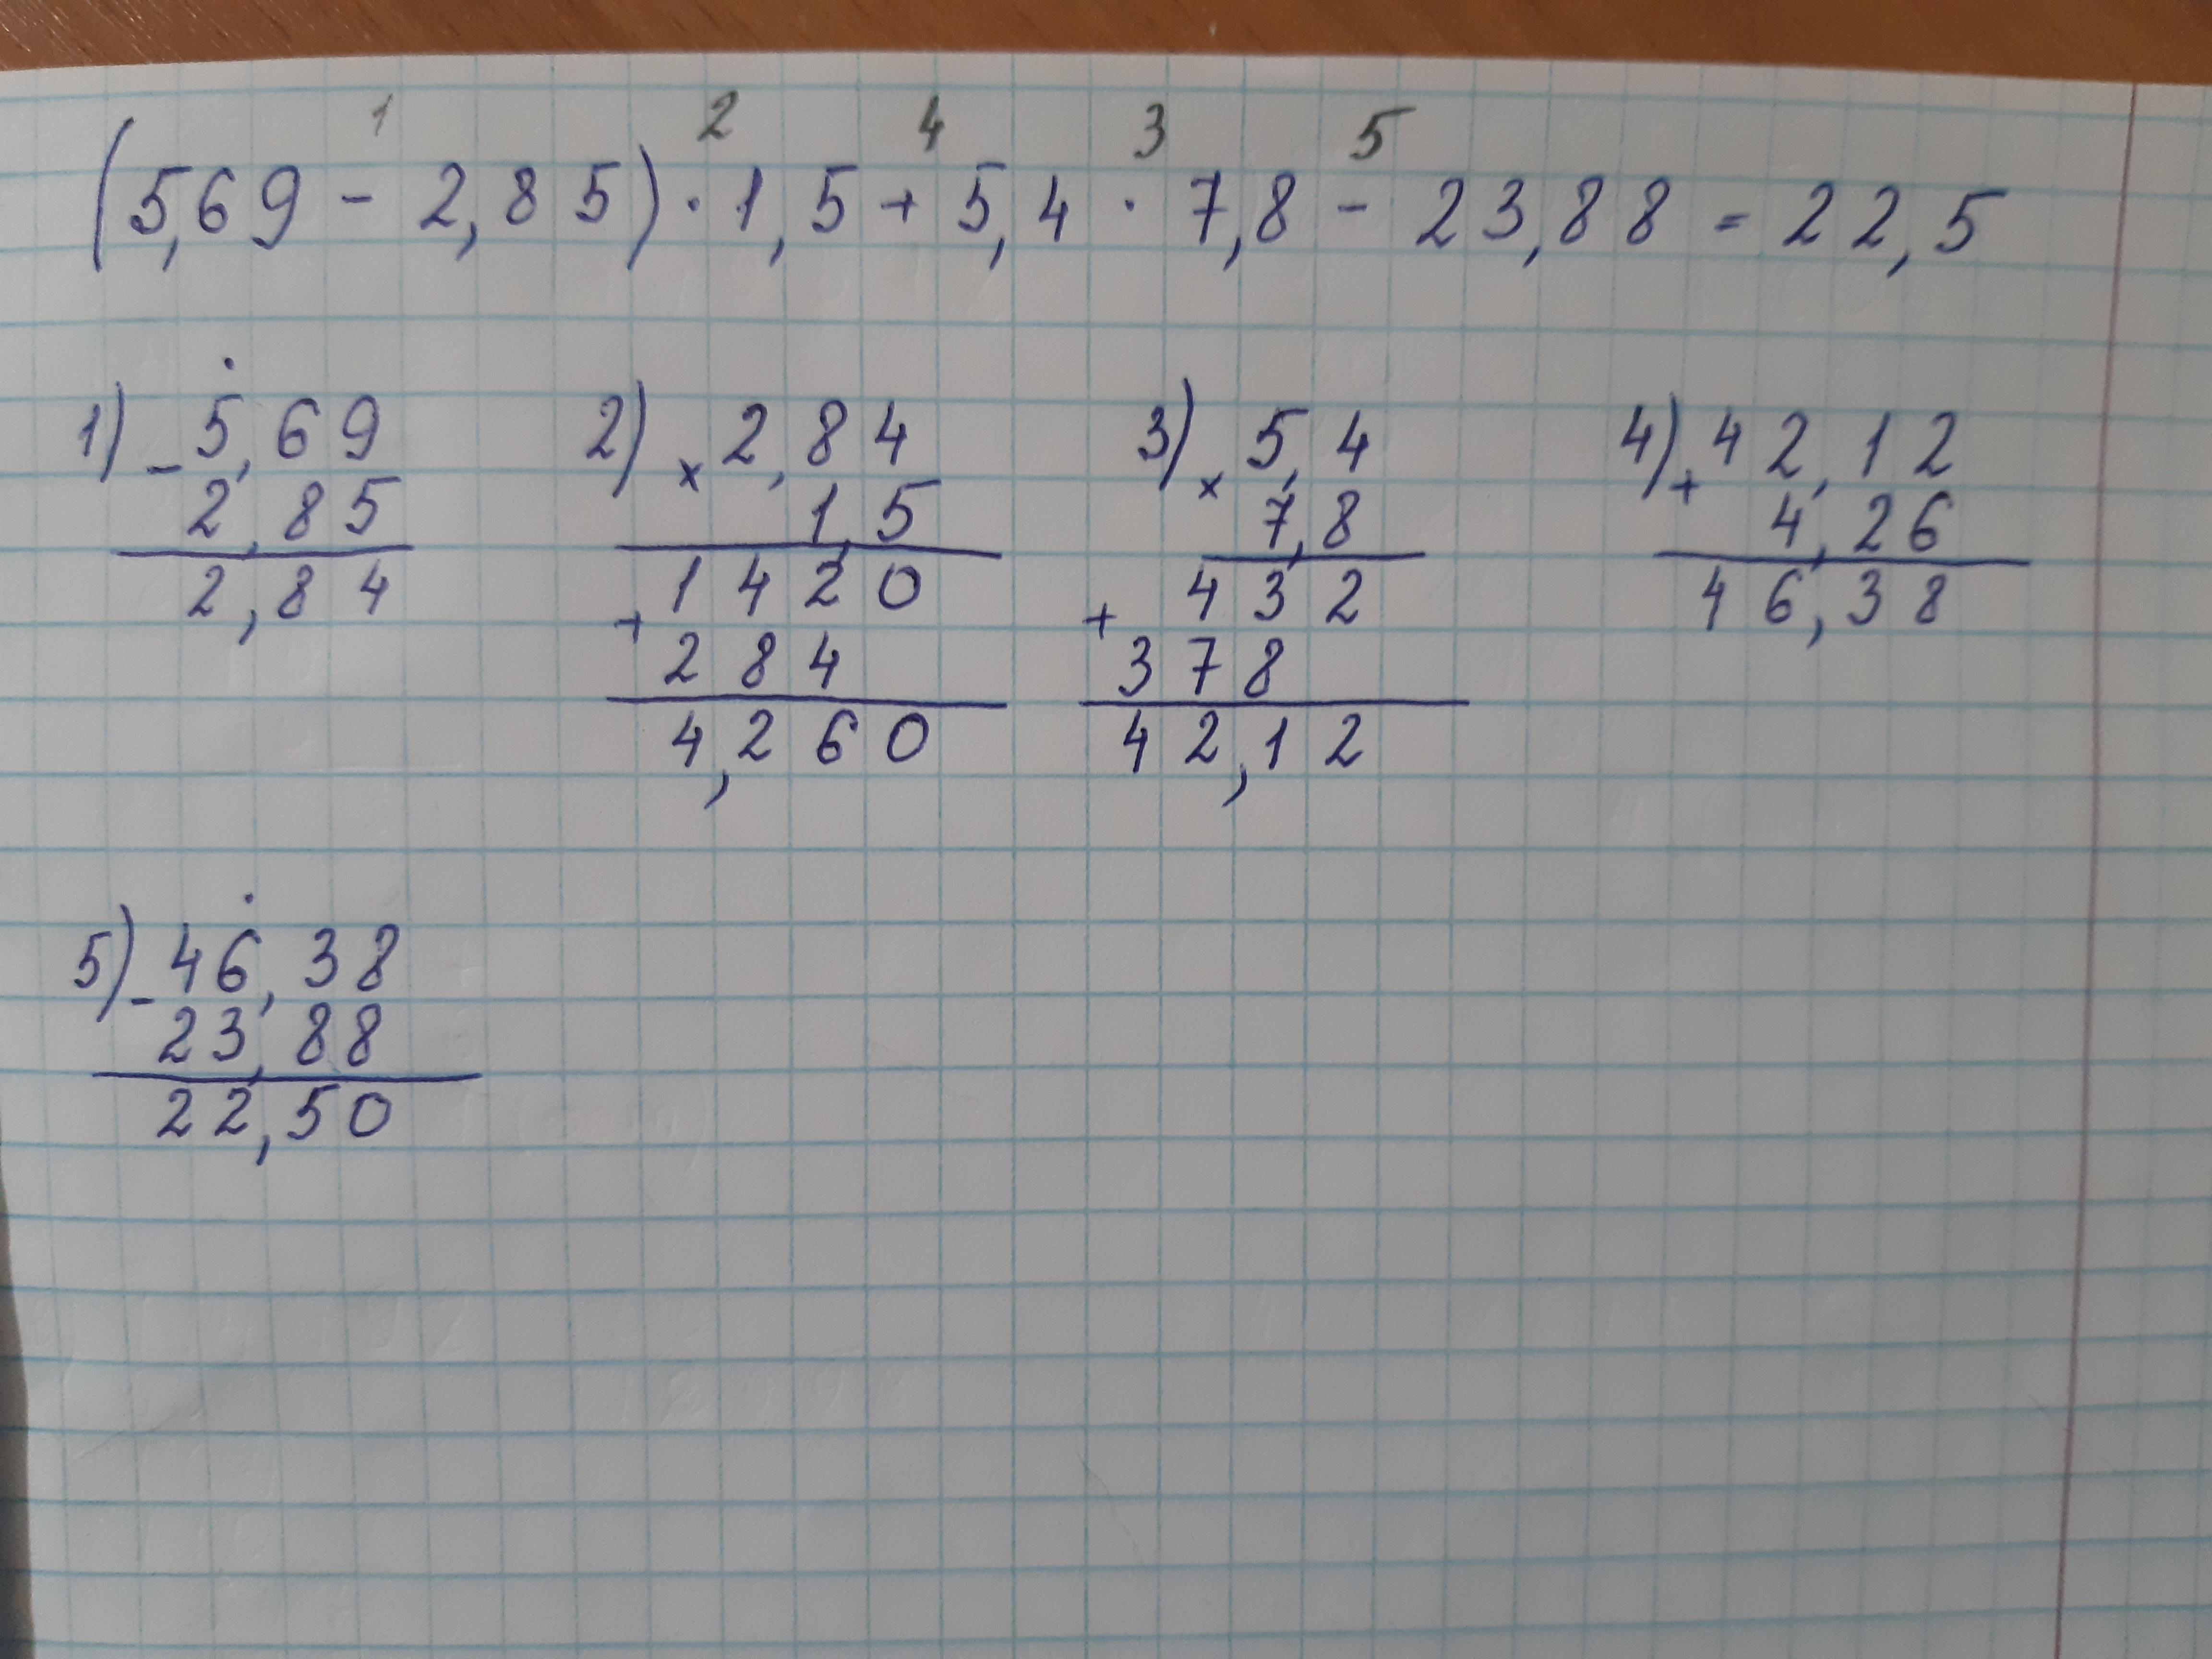 1 2 4 3 5
(5,69 - 2,85) · 1,5 + 5,4 · 7,8 - 23,88 = 22,5
1) - 5,69
2,85
2,84
2) × 2,84
1,5
1420
+ 284
4,260
3) × 5,4
7,8
432
+ 378
42,12
4) + 42,12
4,26
46,38
5) - 46,38
23,88
22,50